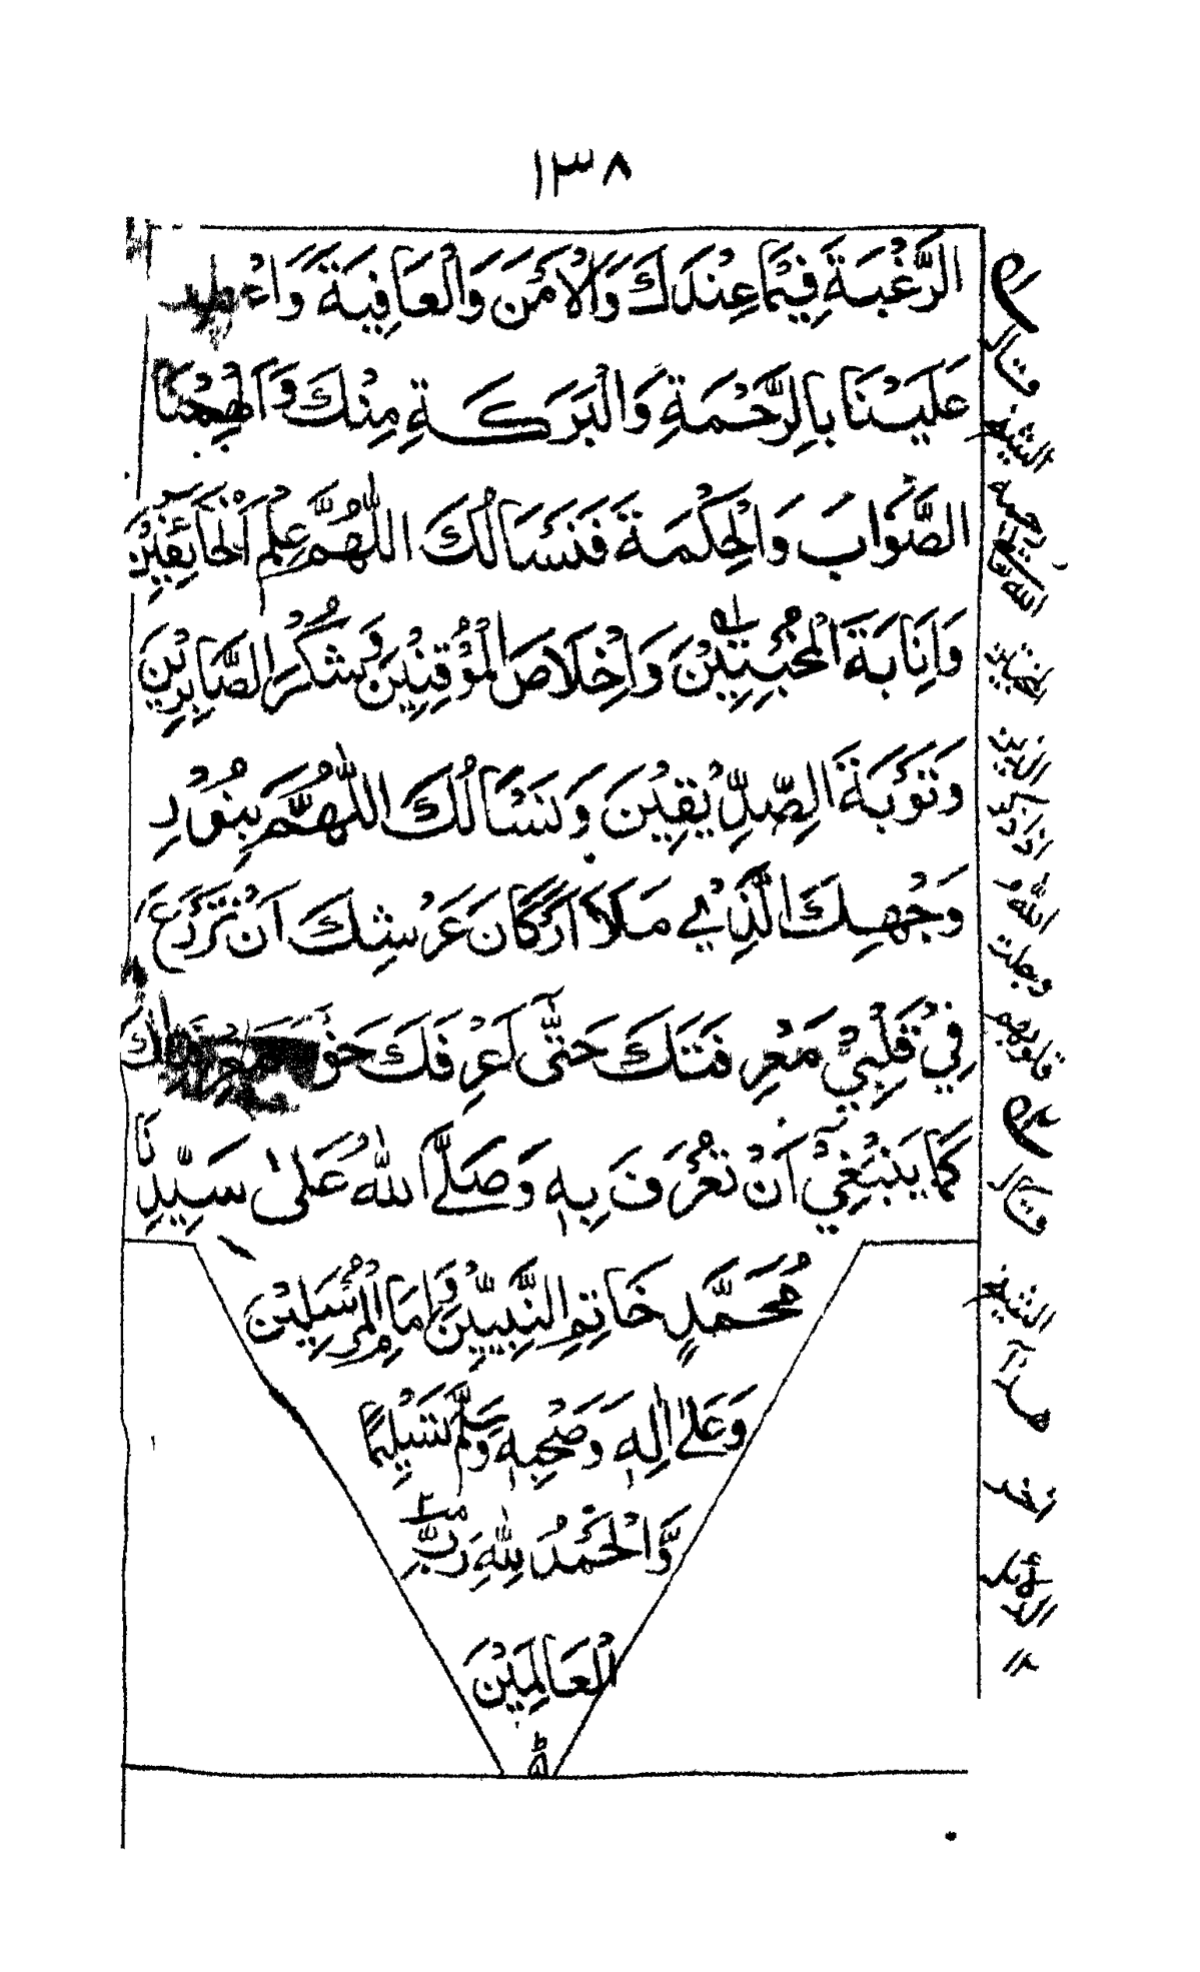 ١٣٨
الرَّغْبَةَ فِيْمَا عِنْدَكَ وَالْاَمْنَ وَالْعَافِيَةَ وَاءْ
عَلَيْنَا بِالرَّحْمَةِ وَالْبَرَكَةِ مِنْكَ وَاَلْهِمْنَا
الصَّوَابَ وَالْحِكْمَةَ فَنَسْاَلُكَ اللّٰهُمَّ عِلْمَ الْخَآئِفِيْنَ
وَاِنَابَةَ الْمُخْبِتِيْنَ وَاِخْلَاصَ الْمُوْقِنِيْنَ وَشُكْرَ الصَّابِرِيْنَ
وَتَوْبَةَ الصِّدِّيْقِيْنَ وَنَسْاَلُكَ اللّٰهُمَّ بِنُوْرِ
وَجْهِكَ الَّذِيْ مَلَاَ اَرْكَانَ عَرْشِكَ اَنْ تَزْرَعَ
فِيْ قَلْبِيْ مَعْرِفَتَكَ حَتّٰى اَعْرِفَكَ حَقَّ مَعْرِفَتِكَ
كَمَا يَنْبَغِيْ اَنْ تُعْرَفَ بِهٖ وَصَلَّى اللّٰهُ عَلٰى سَيِّدِنَا
مُحَمَّدٍ خَاتِمِ النَّبِيّٖنَ وَاِمَامِ الْمُرْسَلِيْنَ
وَعَلٰى اٰلِهٖ وَصَحْبِهٖ وَسَلَّمَ تَسْلِيْمًا
وَّالْحَمْدُ لِلّٰهِ رَبِّ
الْعَالَمِيْنَ
قال
الشيخ
رحمه
الله
الذين
اذا ذكر
الله
وجلت
قلوبهم
قال
الشيخ
هذا
اخر